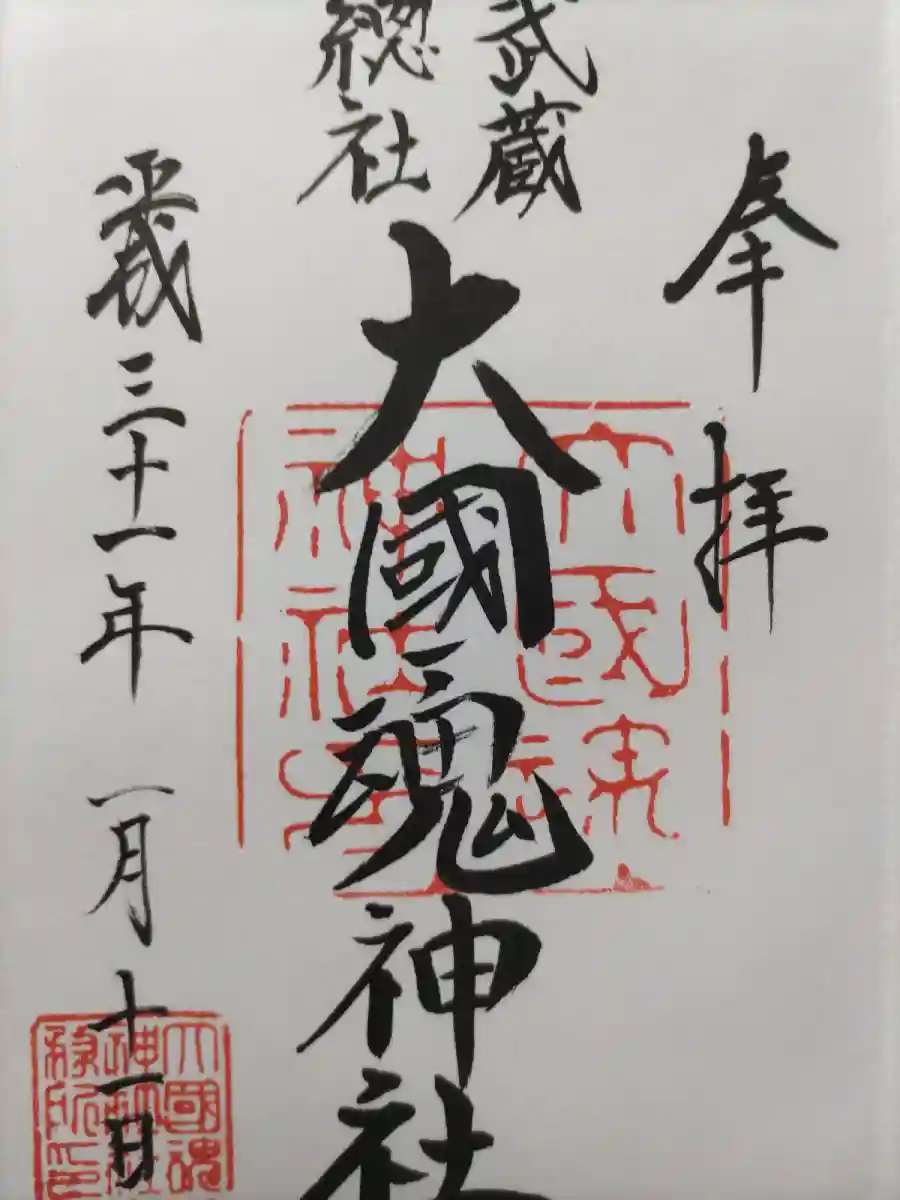 奉拝
武蔵
総社
大國魂神社
平成三十一年 一月十一日
大國魂
神社印
大國魂
神社社
務所印